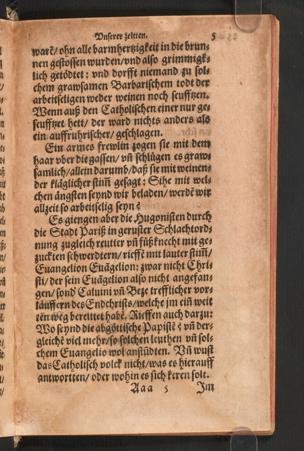 Vnserer zeitten. 5
warē/ ohn alle barmhertzigkeit in die brun-
nen gestossen wurden/ vnd also grimmigk-
lich getödtet: vnd dorfft niemand zu sol-
chem grawsamen Barbarischem todt der
arbeitseligen weder weinen noch seufftzen.
Wenn auß den Catholischen einer nur ge-
seufftzet hett/ der ward nichts anders als
ein auffrhurischer/ geschlagen.
Ein armes frewlin zogen sie mit dem
haar vber die gassen/ vñ schlügen es graw-
samlich/ allein darumb/ daß sie mit weinen-
der kläglicher stim̃ gesagt: Sihe mit wel-
chen ängsten seynd wir beladen/ werdē wir
allzeit so arbeitselig seyn?
Es giengen aber die Hugonisten durch
die Stadt Pariß in geruster Schlachtord-
nung zugleich reutter vñ fůßknecht mit ge-
zuckten schwerdtern/ riefft mit lauter stim̃/
Euangelion Euāgelion: zwar nicht Chri-
sti/ der sein Euāgelion also nicht angefan-
gen/ sond' Caluini vñ Beze trefflicher vor-
läuffern des Endchrists/ welche jm eiñ weit-
tēn weg bereittet habē. Rieffen auch darzu:
Wo seynd die abgöttische Papistē? vñ der-
gleichē viel mehr/ so solchen leuthen vñ sol-
chem Euangelio wol anstůdten. Vñ wust
das Catholisch volck nicht/ was es hierauff
antwortten/ oder wohin es sich keren solt.
Aaa 5 Im